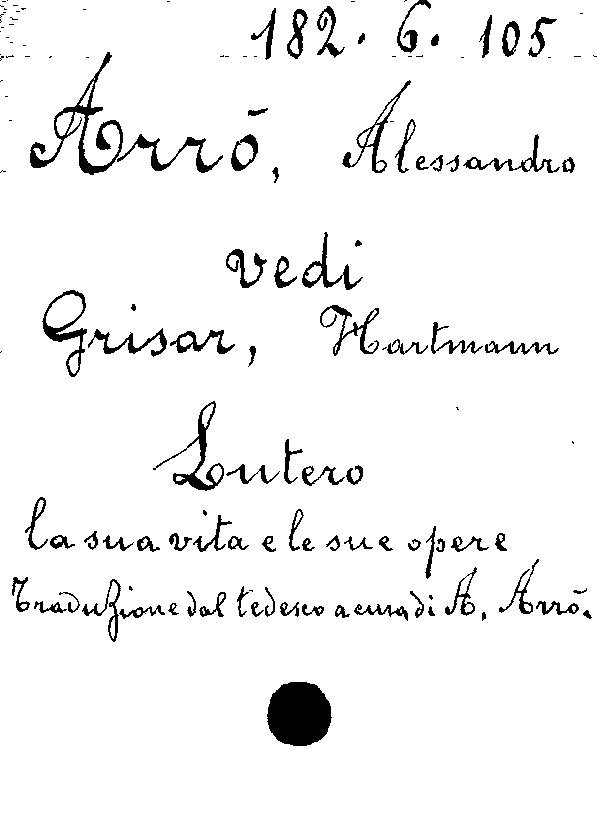 182. 6. 105
Arrō, Alessandro
vedi
Grisar, Hartmann
Lutero
la sua vita e le sue opere
Traduzione dal tedesco a cura di A. Arrō.